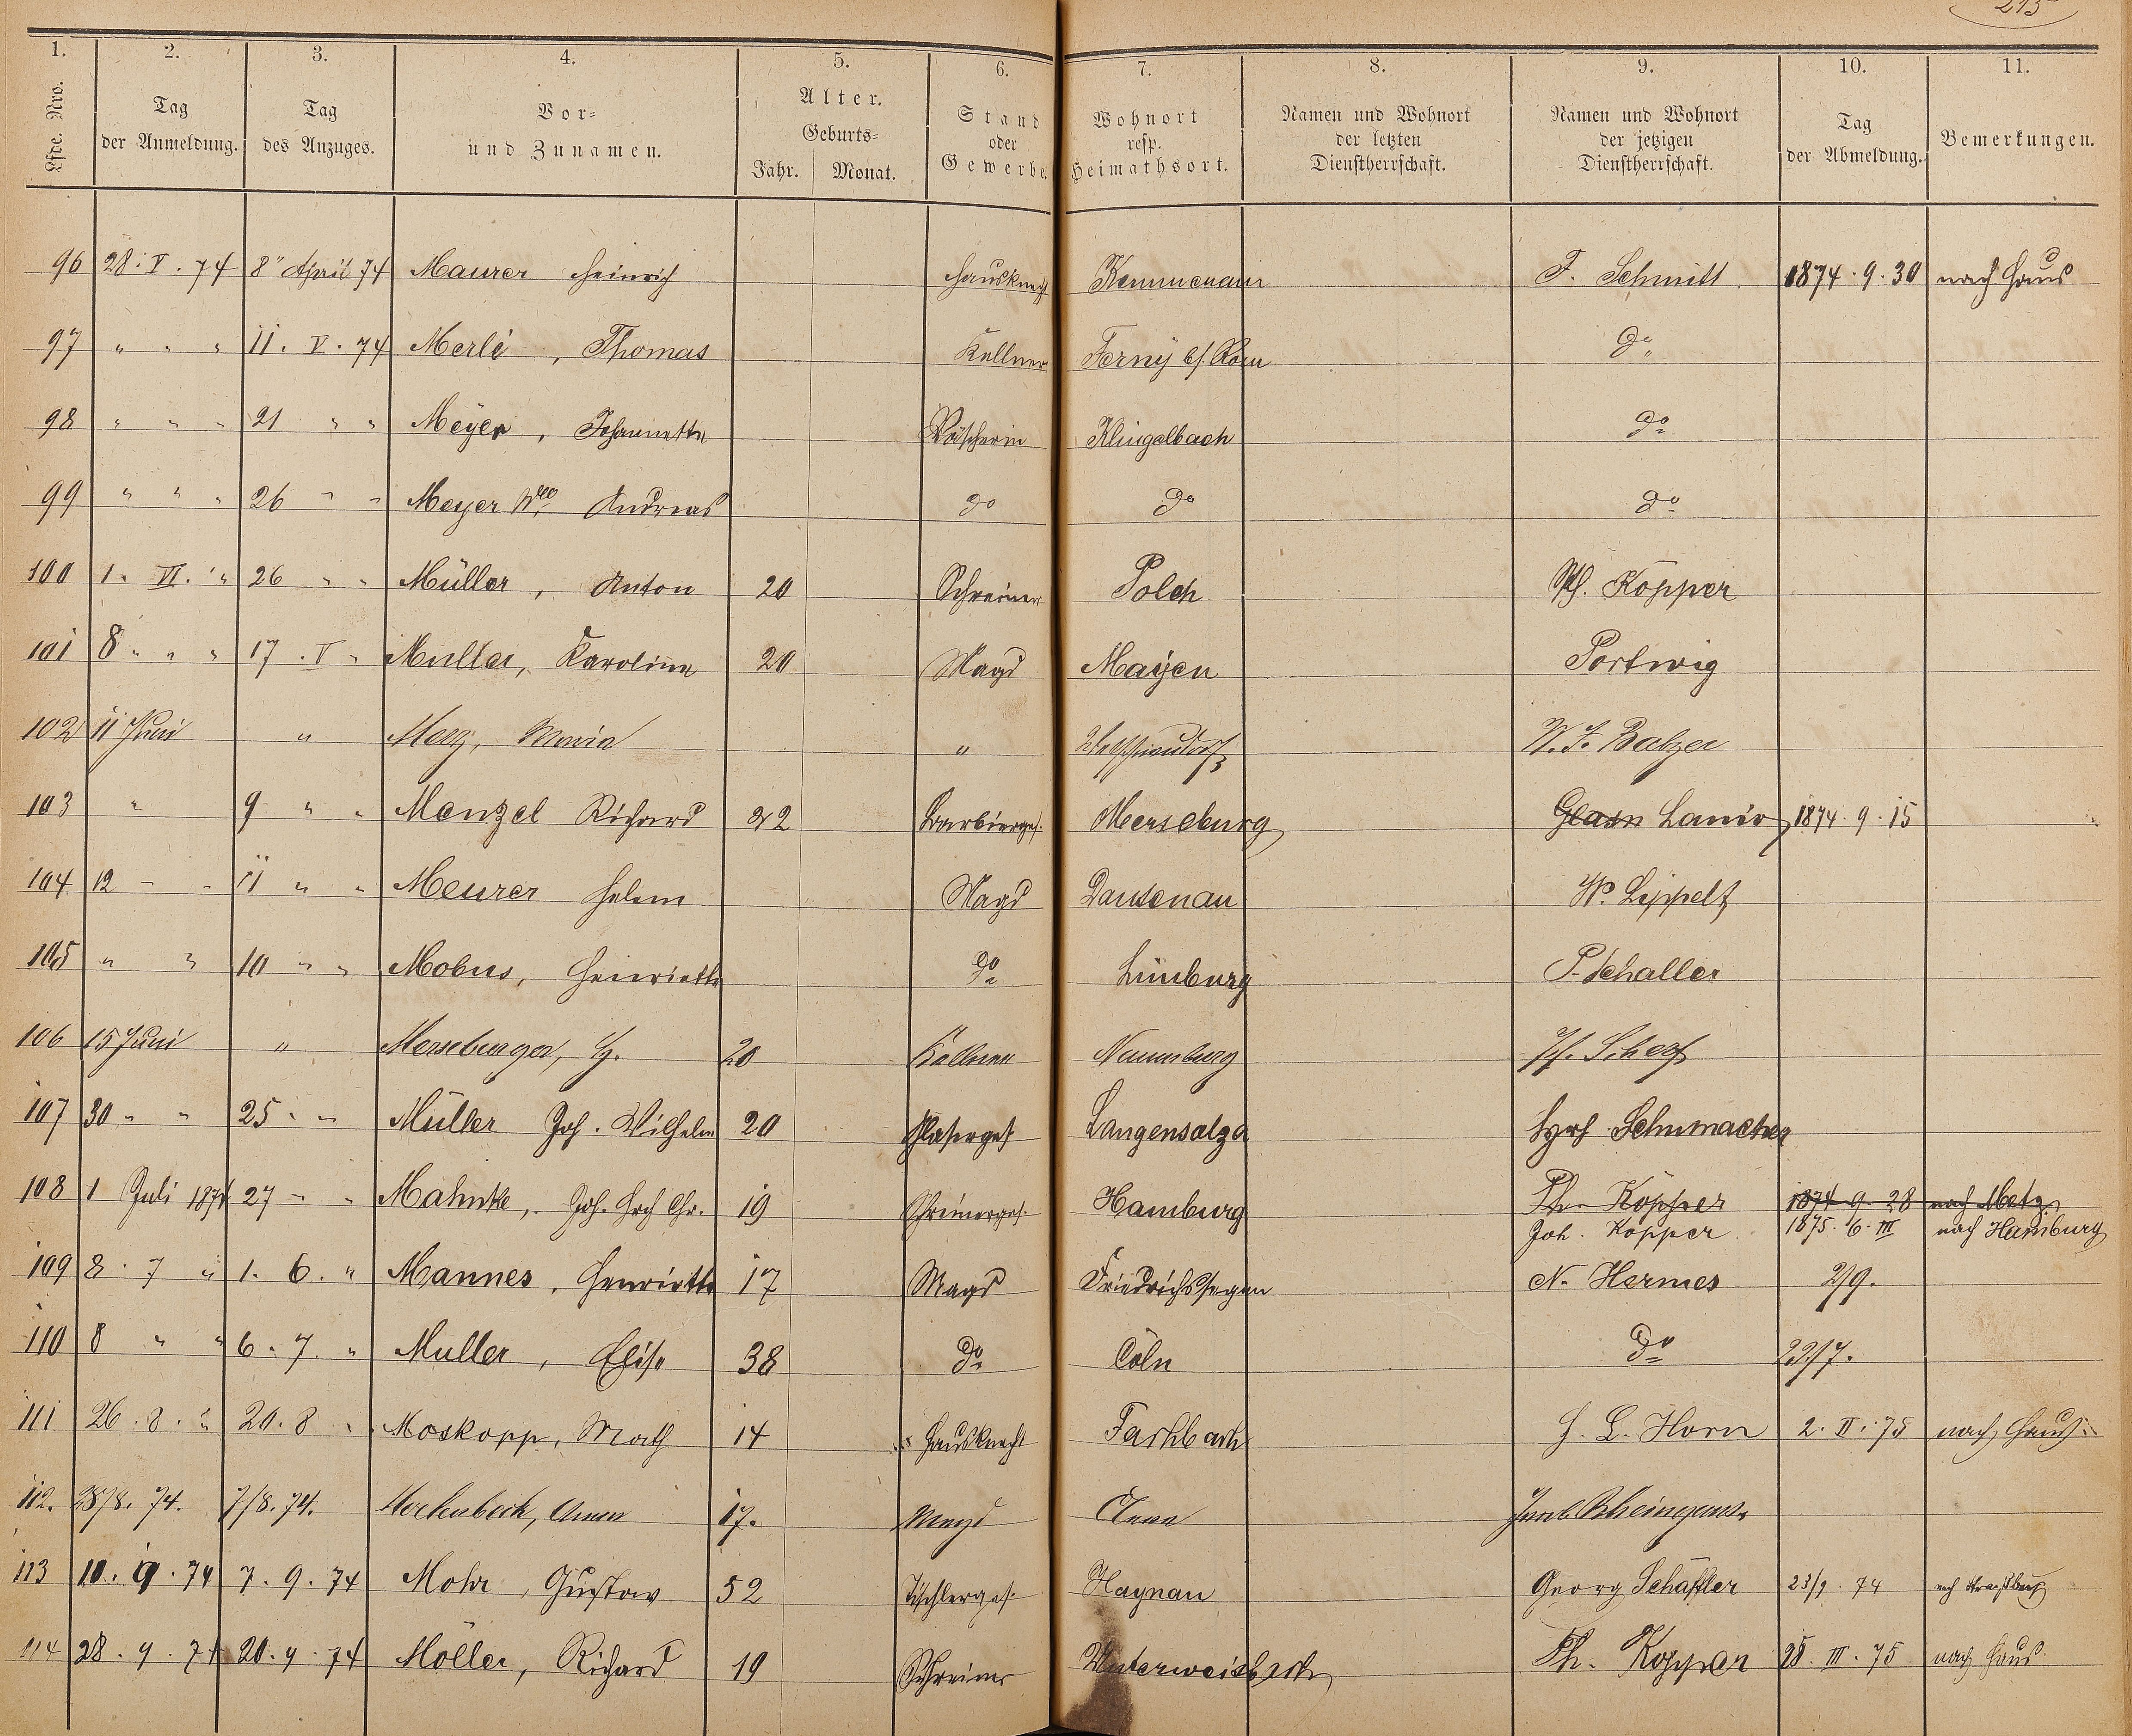 215
1. 2. 3. 4. 5. 6. 7. 8. 9. 10. 11.
Lfde. Nro. Tag der Anmeldung. Tag des Anzuges. Vor- und Zunamen. Alter. Geburts- Jahr. Monat. Stand oder Gewerbe. Wohnort resp. Heimathsort. Namen und Wohnort der letzten Dienstherrschaft. Namen und Wohnort der jetzigen Dienstherrschaft. Tag der Abmeldung. Bemerkungen.
96 28. V. 74 8" April 74 Maurer Heinrich Hausknecht Kemmenau F. Schmitt 1874. 9. 30 nach Haus
97 " " " 11. V. 74 Merlé, Thomas Kellner do
98 " " " 21 " " Meyer, Johannette Wäscherin Klingelbach do
99 " " " 26 " " Meyer Andreas do do do
100 1. VI. " 26 " " Müller, Anton 20 Schreiner Polch Ph. Köpper
101 8 " " " 17. V " Muller, Karoline 20 Magd Mayen Portwig
102 11 Juni " Merz, Maria " W. F. Balzer
103 " 9 " " Menzel Richard 22 Barbierges. Merseburg Lanio 1874. 9. 15
104 12 " " 11 " " Meurer Helene Magd Dausenau W. Lippelt
105 " " 10 " " Mobus, Henriette do Limburg P. Schaller
106 15 Juni " Merseburger, 20 Kellner Naumburg Scherf
107 30 " " 25 " " Müller Joh. Wilhelm 20 Glaserges. Langensalza Schumacher
108 1 Juli 1874 27 " " Mahnke, Joh. Hch Chr. 19 Schreinerges. Hamburg Ph. Köpper 1874 9. 28 nach Metz
Joh. Köpper 1875. 6. III nach Hamburg
109 8. 7 " 1. 6. " Mannes, Henriette 17 Magd Friedrichssegen N. Hermes 2/9.
110 8 " " 6. 7. " Muller, Elise 38 do Cöln do 23/7.
111 26. 8. " 20. 8 " Moskopp, Math 14 Hausknecht Fachbach H. L. Horn 2. II. 75 nach Haus
112. 28/8. 74. 7/8. 74. Anna 17. Magd Rheingans
113 10. 9. 74 7. 9. 74 Mohr, Gustav 52 Tischlerges. Haynau Georg Schäffler 23/9. 74 nch Strassburg
114 28. 9. 74 20. 9. 74 Möller, Richard 19 Schreiner Unterweisbach Ph. Kopper 28. III. 75 nach Haus